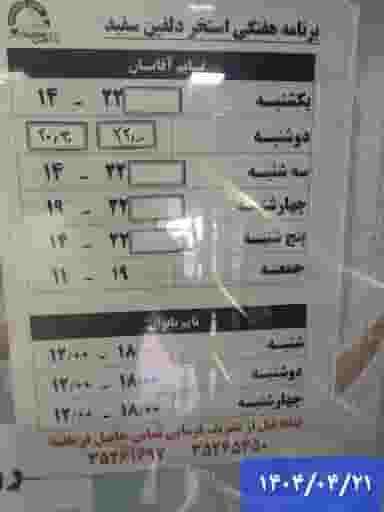 برنامه هفتگی استخر دلفین سفید
سانس آقایان
یکشنبه ۲۲ - ۱۴
دوشنبه ۲۲:۰۰ ۲۰:۳۰
سه شنبه ۲۲ - ۱۴
چهارشنبه ۲۲ - ۱۹
پنج شنبه ۲۲ - ۱۴
جمعه ۱۹ - ۱۱
شنبه ۱۸ - ۱۲:۰۰
دوشنبه ۱۸:۰۰ - ۱۲:۰۰
چهارشنبه ۱۸:۰۰ - ۱۲:۰۰
لطفا قبل از تشریف فرمایی تماس حاصل فرمائید
۳۵۲۴۵۴۵۰ ۳۵۲۴۱۶۹۷
۱۴۰۴/۰۴/۲۱